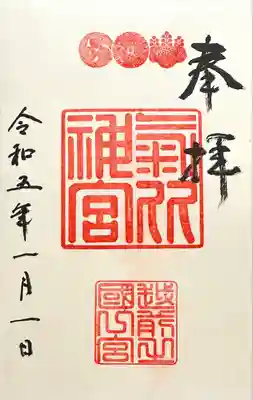 奉拝
氣比
神宮
越前之
國一宮
令和五年一月一日